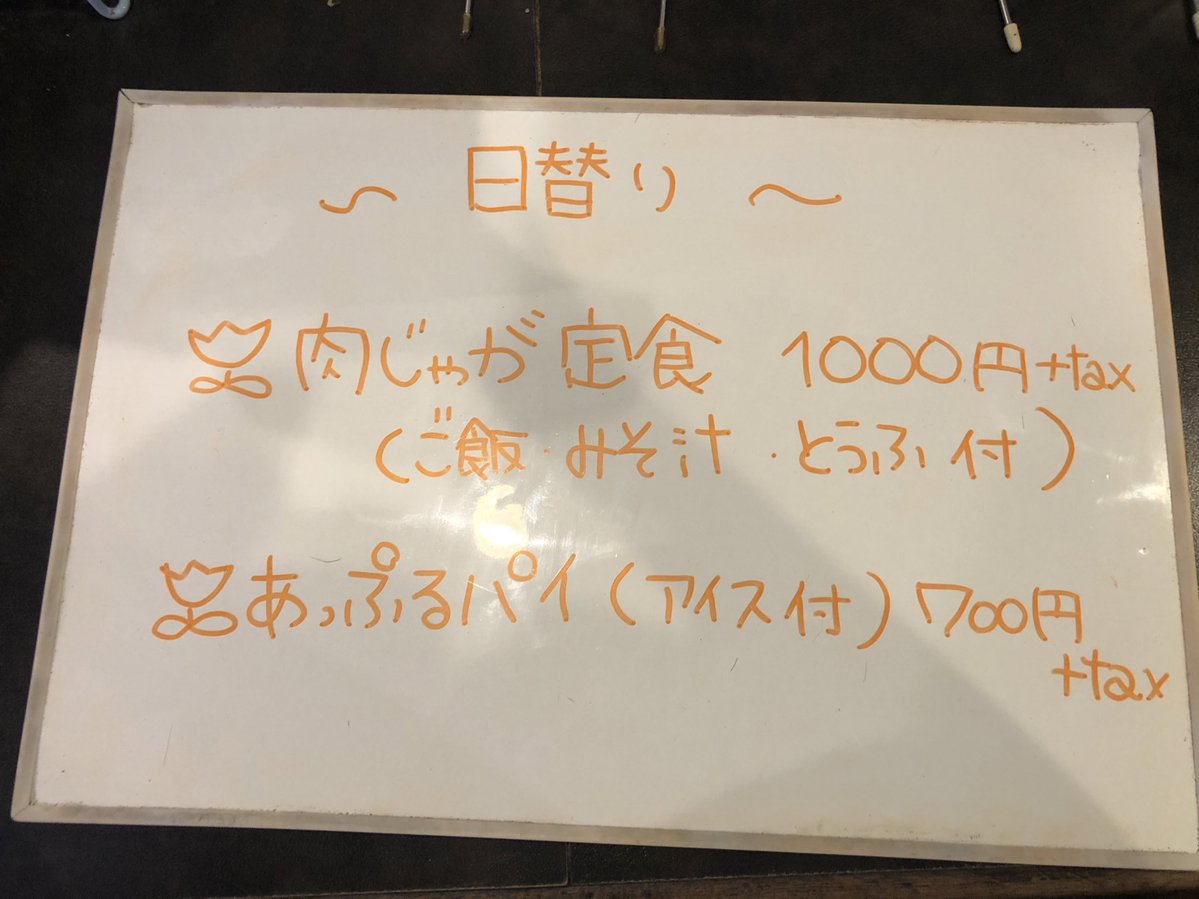 ～ 日替り ～
肉じゃが定食 1000円+tax
(ご飯・みそ汁・とうふ付)
あっぷるパイ(アイス付) 700円
+tax